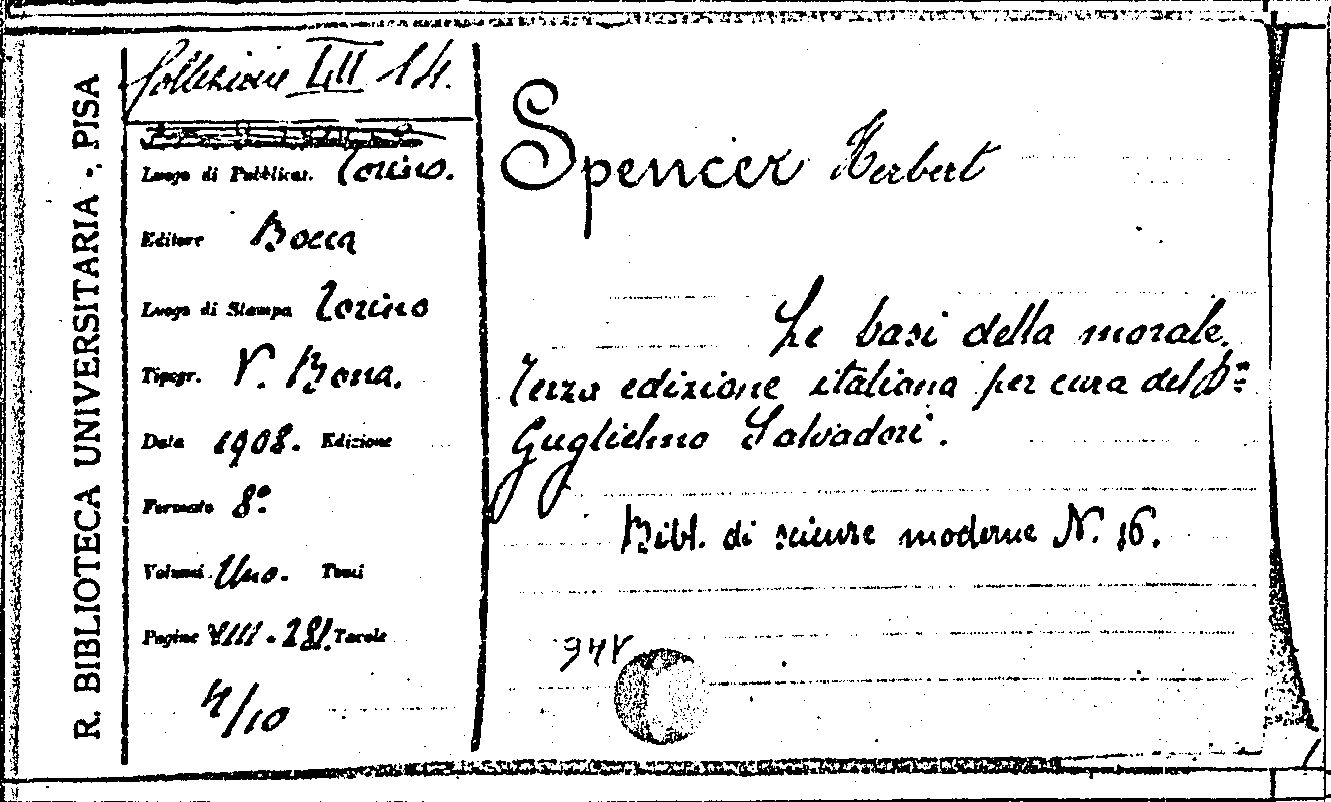 R. BIBLIOTECA UNIVERSITARIA - PISA
Collezione LII 14.
Luogo di Pubblicaz. Torino.
Editore Bocca
Luogo di Stampa Torino
Tipogr. V. Bona.
Data 1908. Edizione
Formato 8º
Volumi Uno. Tomi
Pagine VIII - 281. Tavole
4/10
Spencer Herbert
Le basi della morale.
Terza edizione italiana per cura del Dr
Guglielmo Salvadori.
Bibl. di scienze moderne N. 16.